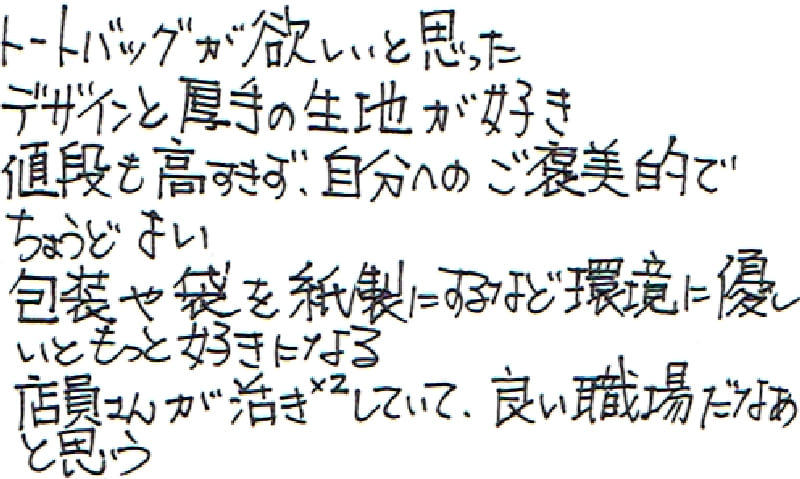 トートバッグが欲しいと思った
デザインと厚手の生地が好き
値段も高すぎず、自分へのご褒美的で
ちょうどよい
包装や袋を紙製にするなど環境に優し
いともっと好きになる
店員さんが活き×2していて、良い職場だなあ
と思う